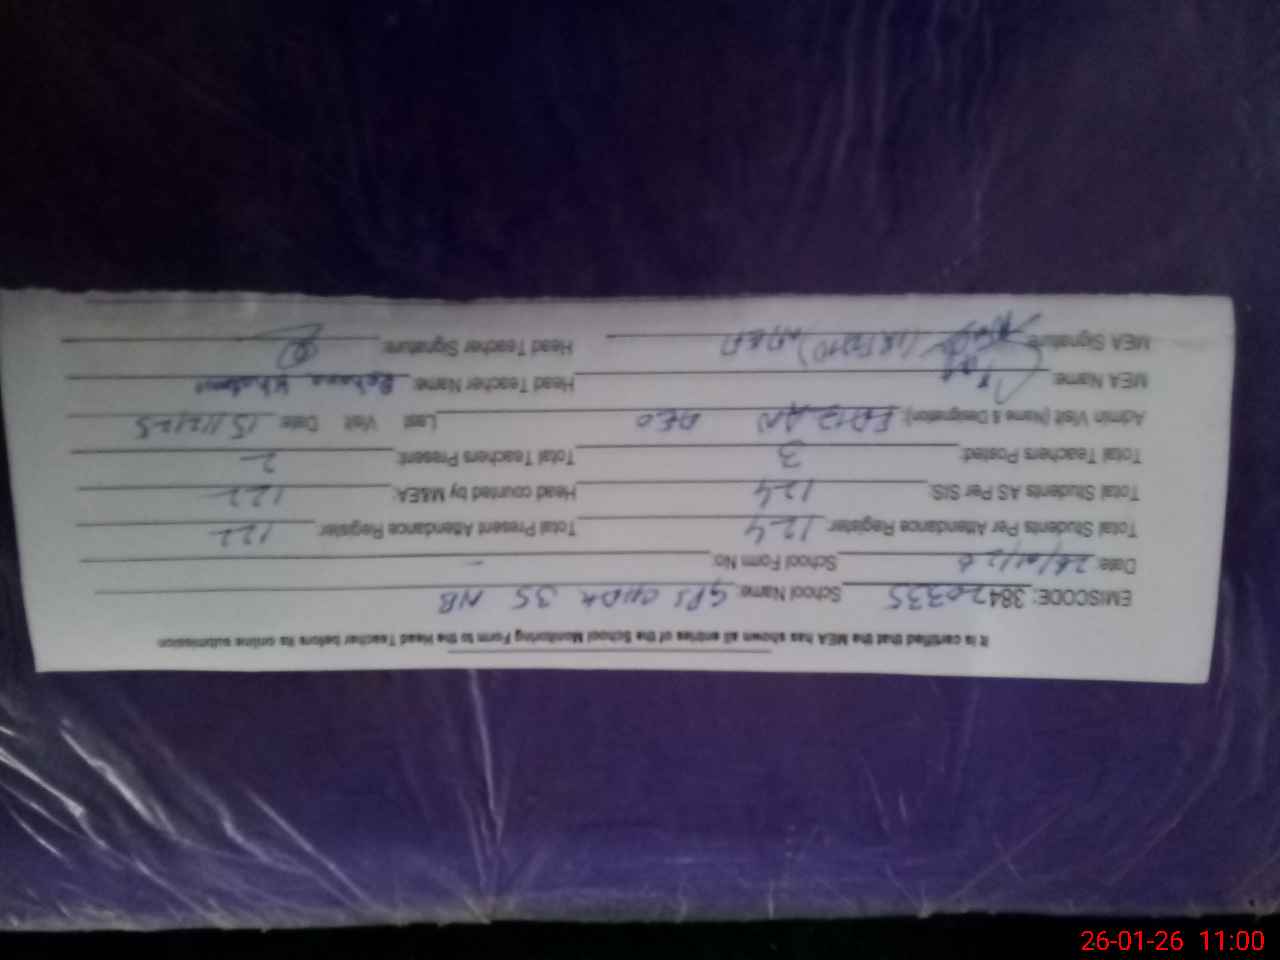 It is certified that the MEA has shown all entries of the School Monitoring Form to the Head Teacher before its online submission
EMISCODE: 38420335 School Name: GPS CHAK 35 NB
Date: 26/01/26 School Form No: -
Total Students Per Attendance Register: 124 Total Present Attendance Register: 122
Total Students AS Per SIS: 124 Head counted by M&EA: 122
Total Teachers Posted: 3 Total Teachers Present: 2
Admin Visit (Name & Designation): AEO Last Visit Date 15/12/25
MEA Name: Head Teacher Name: Rehana
MEA Signature: Head Teacher Signature:
26-01-26 11:00